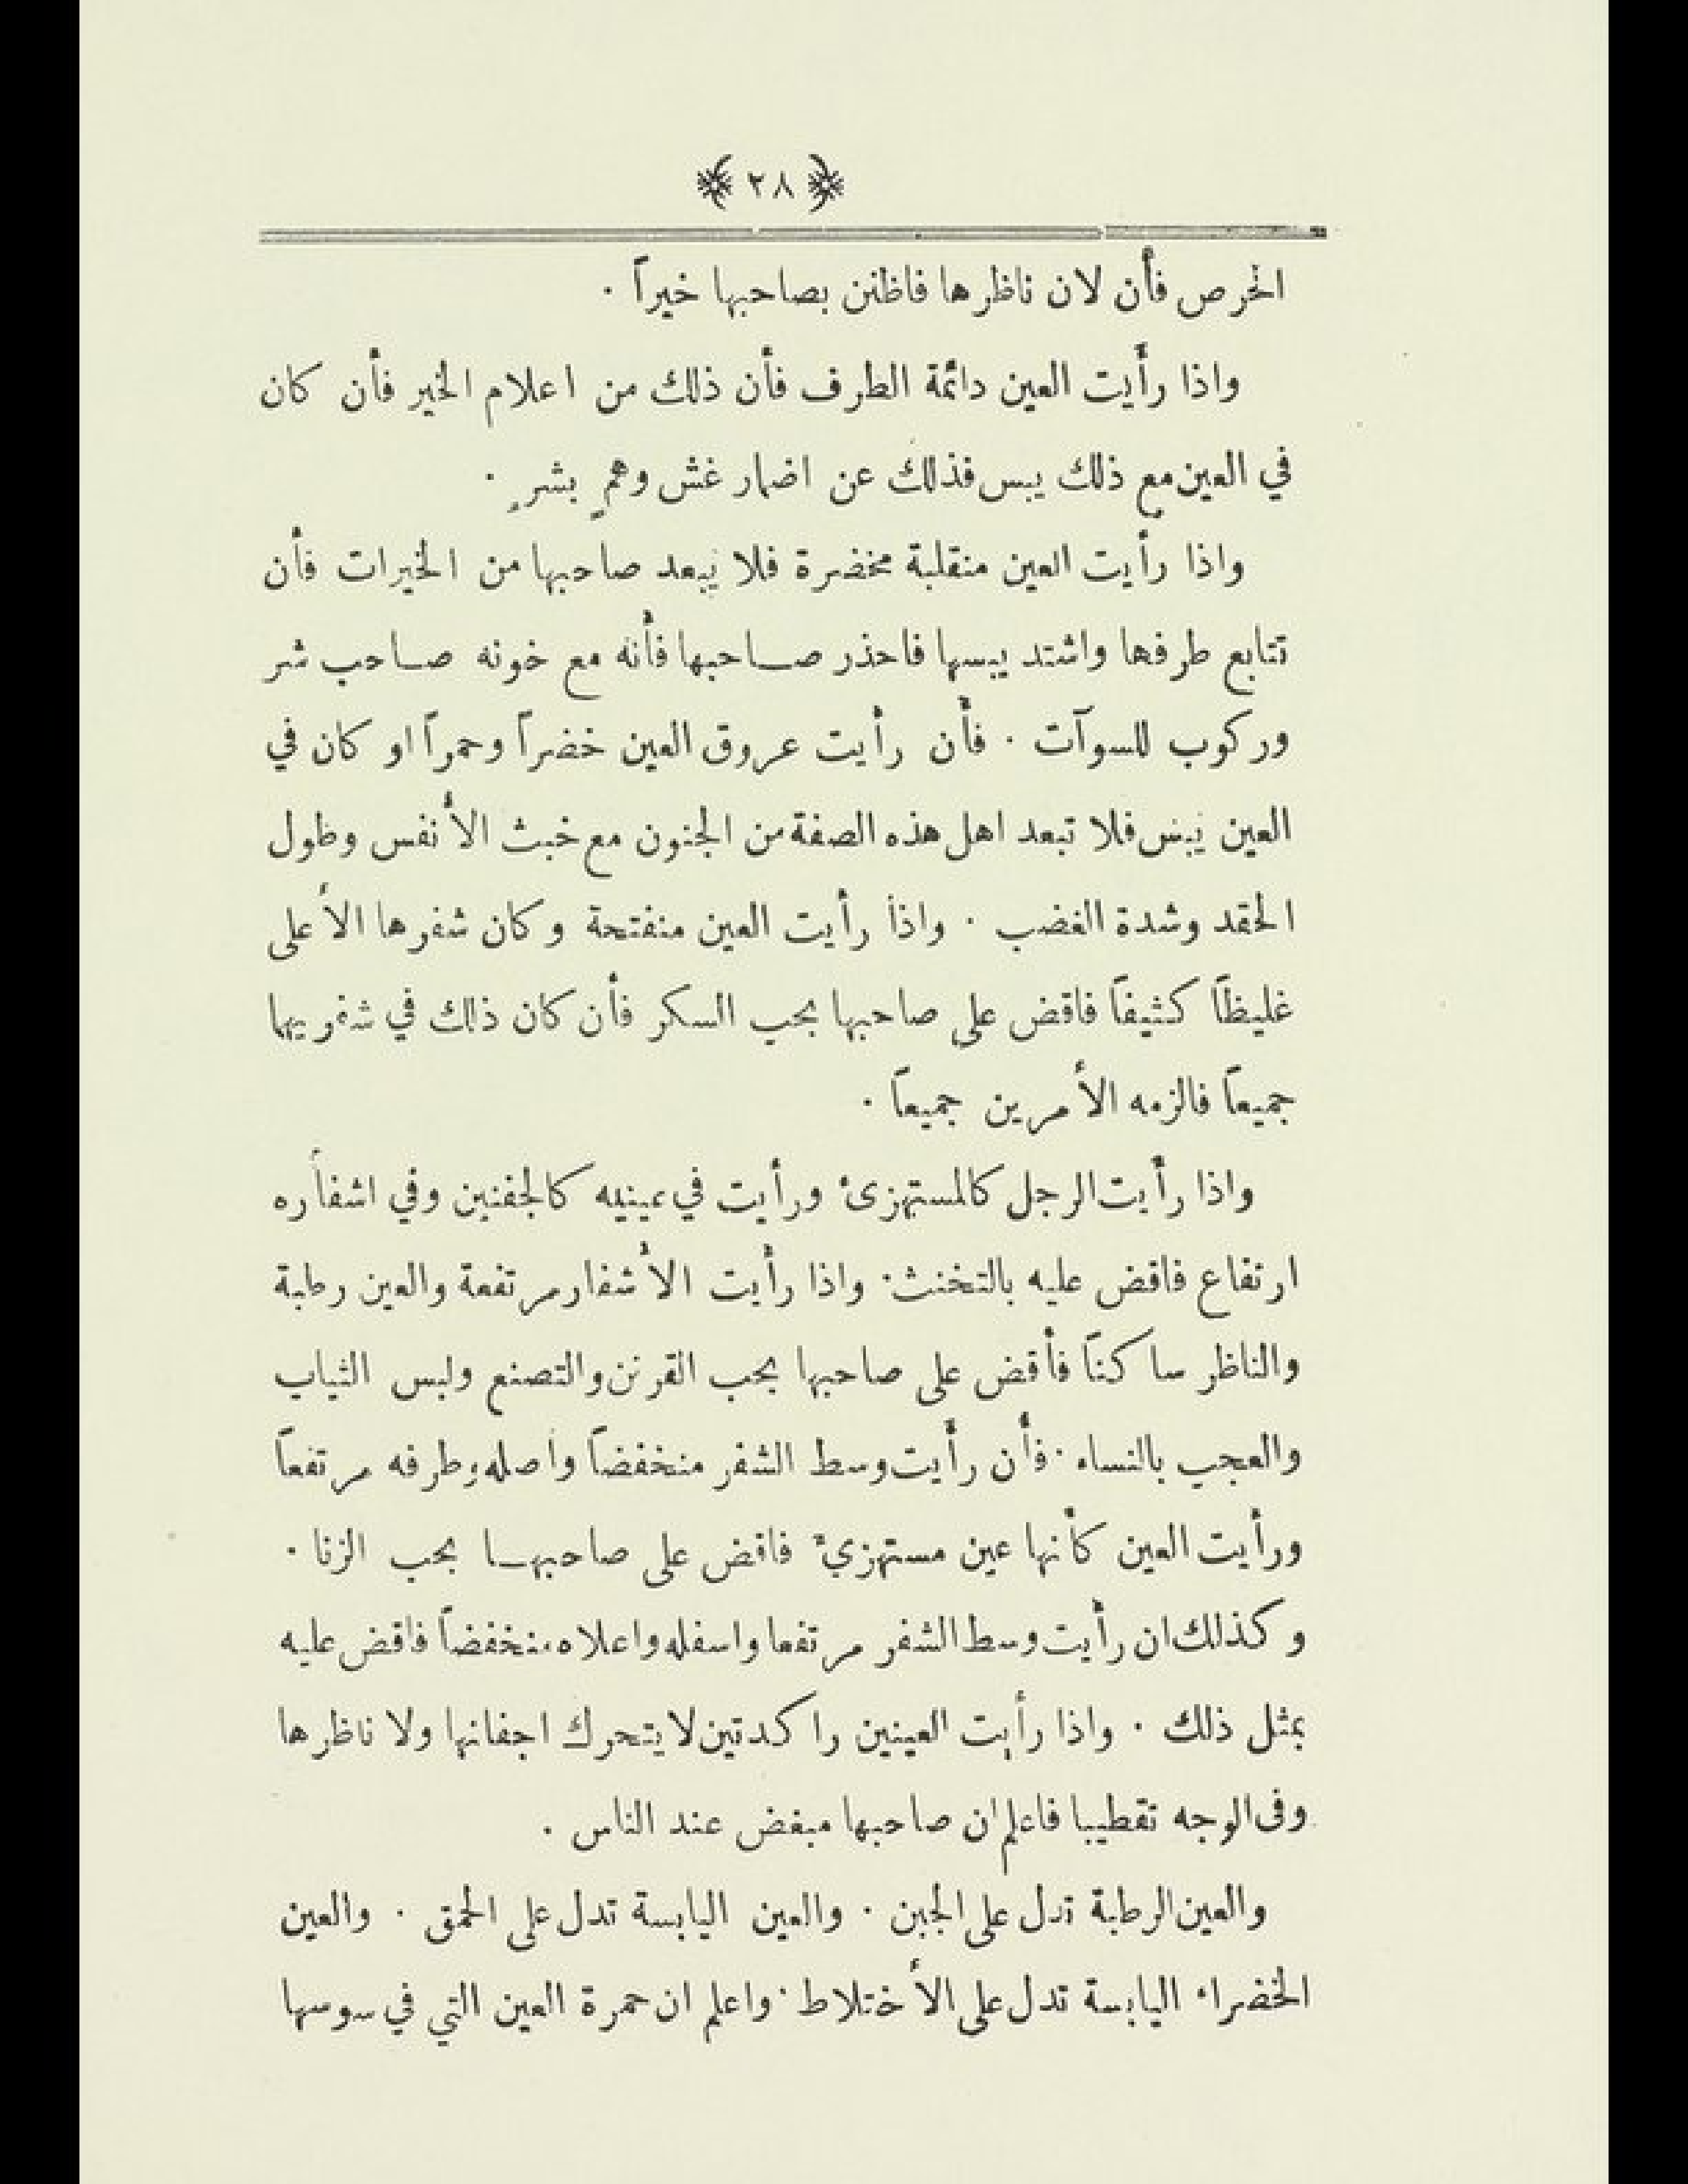 ﴿ ٢٨ ﴾
الحرص فأن لان ناظرها فاظنن بصاحبها خيراً ·
واذا رأيت العين دائمة الطرف فأن ذلك من اعلام الخير فأن كان
في العين مع ذلك يبس فذلك عن اضمار غش وهمٍ بشرٍ ·
واذا رأيت العين منقلبة مخضرة فلا يبعد صاحبها من الخيرات فأن
تتابع طرفها واشتد يبسها فاحذر صاحبها فأنه مع خونه صاحب شر
وركوب للسوآت · فأن رأيت عروق العين خضراً وحمراً او كان في
العين يبس فلا تبعد اهل هذه الصفة من الجنون مع خبث الأنفس وطول
الحقد وشدة الغضب · واذا رأيت العين منفتحة وكان شفرها الأعلى
غليظاً كثيفاً فاقض على صاحبها بحب السكر فأن كان ذلك في شفريها
جميعاً فالزمه الأمرين جميعاً ·
واذا رأيت الرجل كالمستهزئ ورأيت في عينيه كالجفنين وفي اشفأره
ارتفاع فاقض عليه بالتخنث · واذا رأيت الأشفار مرتفعة والعين رطبة
والناظر ساكناً فأقض على صاحبها بحب القرنن والتصنع ولبس الثياب
والعجب بالنساء · فأن رأيت وسط الشفر منخفضاً وأصله وطرفه مرتفعاً
ورأيت العين كأنها عين مستهزئ فاقض على صاحبها بحب الزنا ·
وكذلك ان رأيت وسط الشفر مرتفعا واسفله واعلاه منخفضاً فاقض عليه
بمثل ذلك · واذا رأيت العينين راكدتين لا يتحرك اجفانها ولا ناظرها
وفى الوجه تقطيبا فاعلم ان صاحبها مبغض عند الناس .
والعين الرطبة تدل على الجبن · والعين اليابسة تدل على الحمق · والعين
الخضراء اليابسة تدل على الأختلاط · واعلم ان حمرة العين التي في سوسها